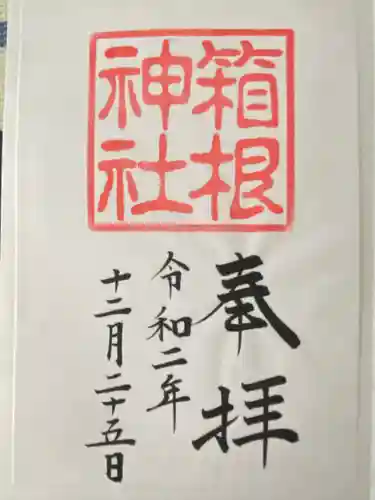 箱根
神社
奉拝
令和二年
十二月二十五日